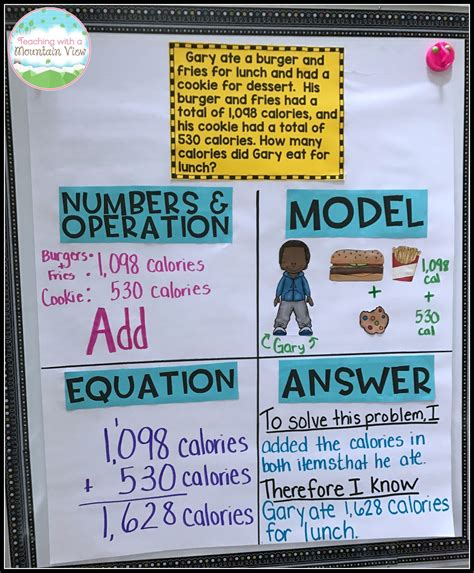 Teaching with a
Mountain View
Gary ate a burger and
fries for lunch and had a
cookie for dessert. His
burger and fries had a
total of 1,098 calories, and
his cookie had a total of
530 calories. How many
calories did Gary eat for
lunch?
NUMBERS &
OPERATION
Burgers
+
Fries : 1,098 calories
Cookie: 530 calories
Add
MODEL
1,098
cal
+
+
530
cal
Gary
EQUATION
1,098 calories
+ 530 calories
1,628 calories
ANSWER
To solve this problem, I
added the calories in
both items that he ate.
Therefore I know
Gary ate 1,628 calories
for lunch.